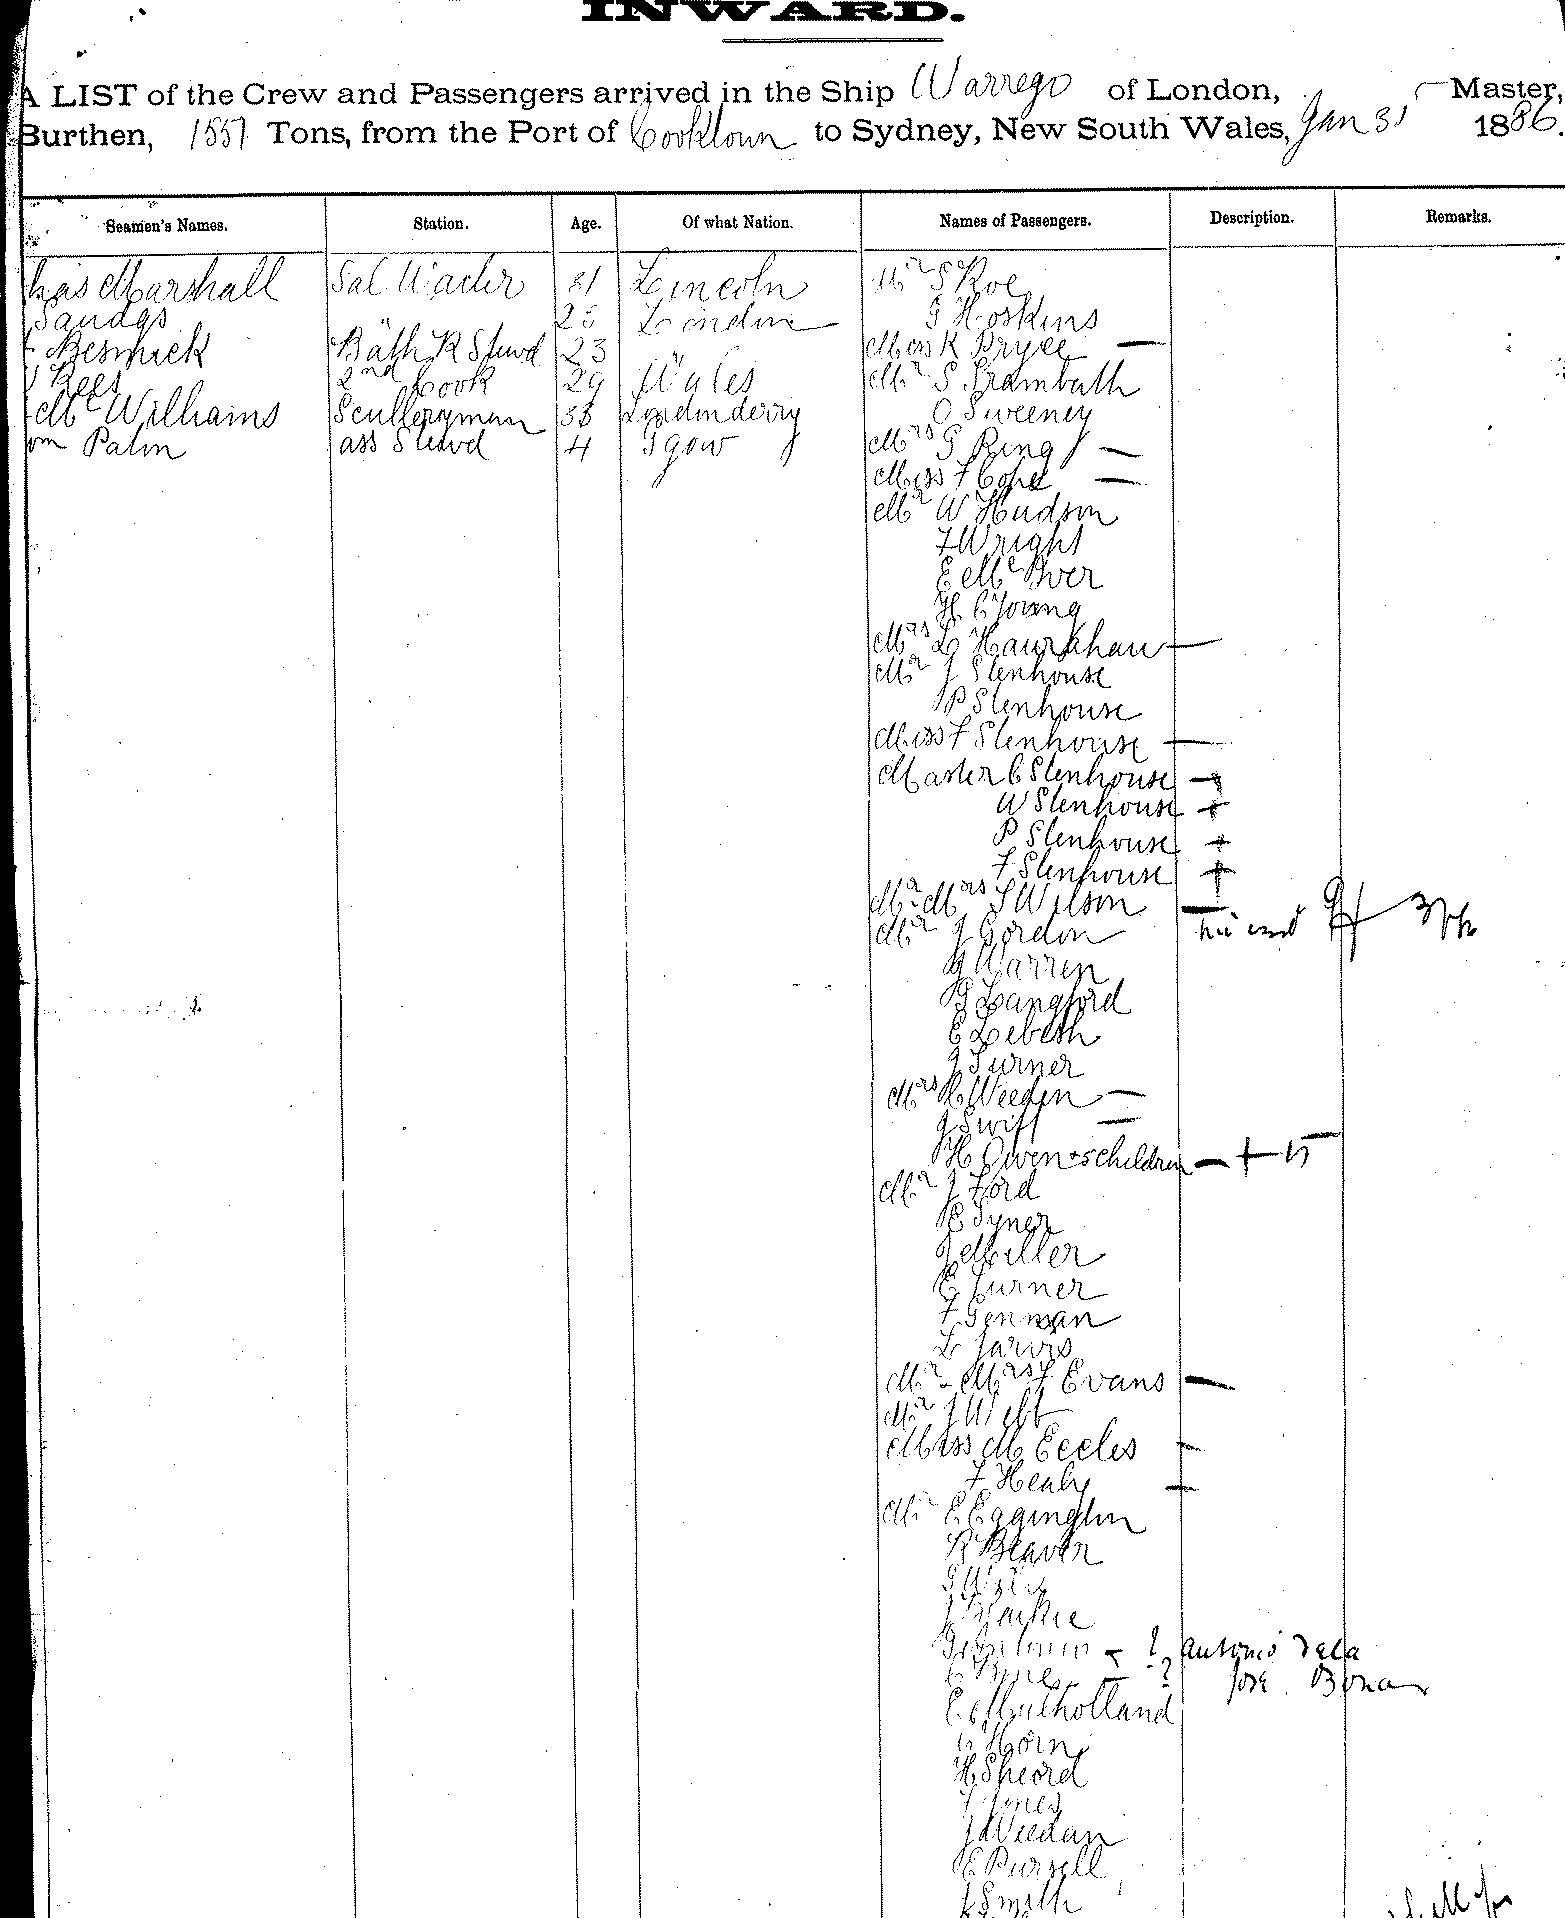 INWARD.
A LIST of the Crew and Passengers arrived in the Ship Warrego of London, Master,
Burthen, 1557 Tons, from the Port of Cooktown to Sydney, New South Wales, Jan 31 1886.
Seamen's Names. Station. Age. Of what Nation. Names of Passengers. Description. Remarks.
Marshall Sal Waiter 31 Lincoln Mr S Roe
Sandas " 25 London G Hoskins
Beswick Bath R Stewd 23 " Miss K Pryce —
Rees 2nd Cook 29 Wales Mr S Trambath
McWilliams Sculleryman 38 Londonderry O Sweeney
Palm ass Stewd 4 Mrs G Ring —
Miss F Cope —
Mr W Hudson
F Wright
E McIver
H C Young
Mrs L —
Mr J Stenhouse
P Stenhouse
Miss F Stenhouse —
Master C Stenhouse
W Stenhouse +
P Stenhouse +
F Stenhouse +
Mr - Mrs S Wilson —
Mr J Gordon
G Warren
G Langford
E Lebeth
J Turner
Mrs H Weedon —
J Swift —
H Owen + 5 children — + 5
Mr J Ford
E Tyner
J Miller
E Turner
F Genman
L Jarvis
Mr - Mrs J Evans —
Mr J Webb
Miss M Eccles -
F Healy —
Mr E Eggington
R Beaven
J
? Antonio Vela
? Jose Bona
E Mulholland
C Horn
H Sheord
J Jones
J Weedan
E Pursell
J Smith